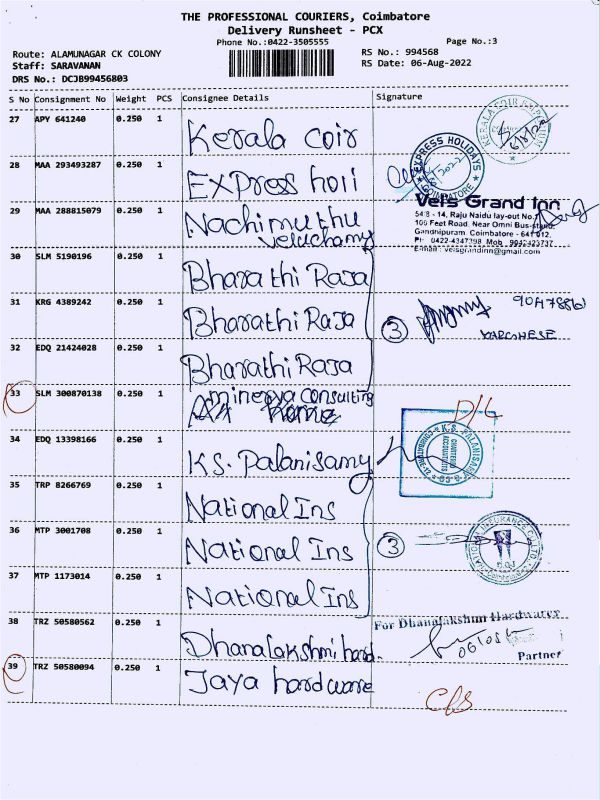 THE PROFESSIONAL COURIERS, Coimbatore
Delivery Runsheet - PCX
Phone No.:0422-3505555
Page No.:3
Route: ALAMUNAGAR CK COLONY
RS No.: 994568
Staff: SARAVANAN
RS Date: 06-Aug-2022
DRS No.: DCJB99456803
S No Consignment No Weight PCS Consignee Details Signature
27 APY 641240 0.250 1 Kerala coir
KERALA COIR
28 MAA 293493287 0.250 1 EXPress holi
EXPRESS HOLIDAYS
COIMBATORE
29 MAA 288815079 0.250 1 Nachimuthu
Veluchamy
Vel's Grand Inn
54/8 - 14, Raju Naidu lay-out No.
100 Feet Road, Near Omni Bus-stand,
Gandhipuram Coimbatore - 641 012.
Ph: 0422-4347398 Mob
E-mail: velsgrandinn@gmail.com
30 SLM 5190196 0.250 1 Bharathi Raja
31 KRG 4389242 0.250 1 Bharathi Raja
3
32 EDQ 21424028 0.250 1 Bharathi Raja
33 SLM 300870138 0.250 1 minerva consulting
D/L
34 EDQ 13398166 0.250 1 K.S. Palanisamy
K.S. PALANISAMY
CHARTERED
ACCOUNTANTS
35 TRP 8266769 0.250 1 National Ins
36 MTP 3001708 0.250 1 National Ins
3
37 MTP 1173014 0.250 1 National Ins
38 TRZ 50580562 0.250 1 Dhanalakshmi hard.
For Dhanalakshmi Hardwares
Partner
39 TRZ 50580094 0.250 1 Jaya hardware